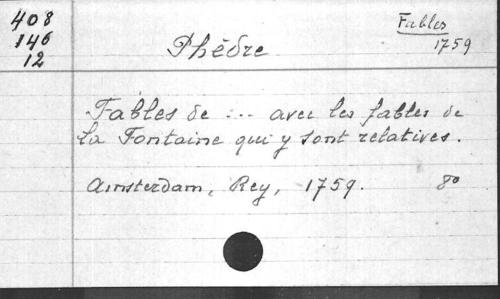 408
146
12
Phèdre
Fables
1759
Fables de ... avec les fables de
la Fontaine qui y sont relatives.
Amsterdam, Rey, 1759. 8°